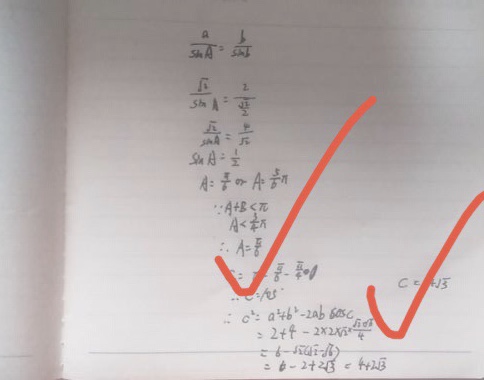 a/sinA = b/sinb
√2/sinA = 2/(√2/2)
√2/sinA = 4/√2
sinA = 1/2
A = π/6 or A = 5/6 π
∵ A+B<π
A < 3/4 π
∴ A = π/6
= π - π/6 - π/4
∴ C = 105°
C = √3
∴ c² = a²+b²-2ab cosC
= 2+4 - 2×2×√2×(√2-√6)/4
= 6 - √2(√2-√6)
= 6 - 2 + 2√3 = 4+2√3